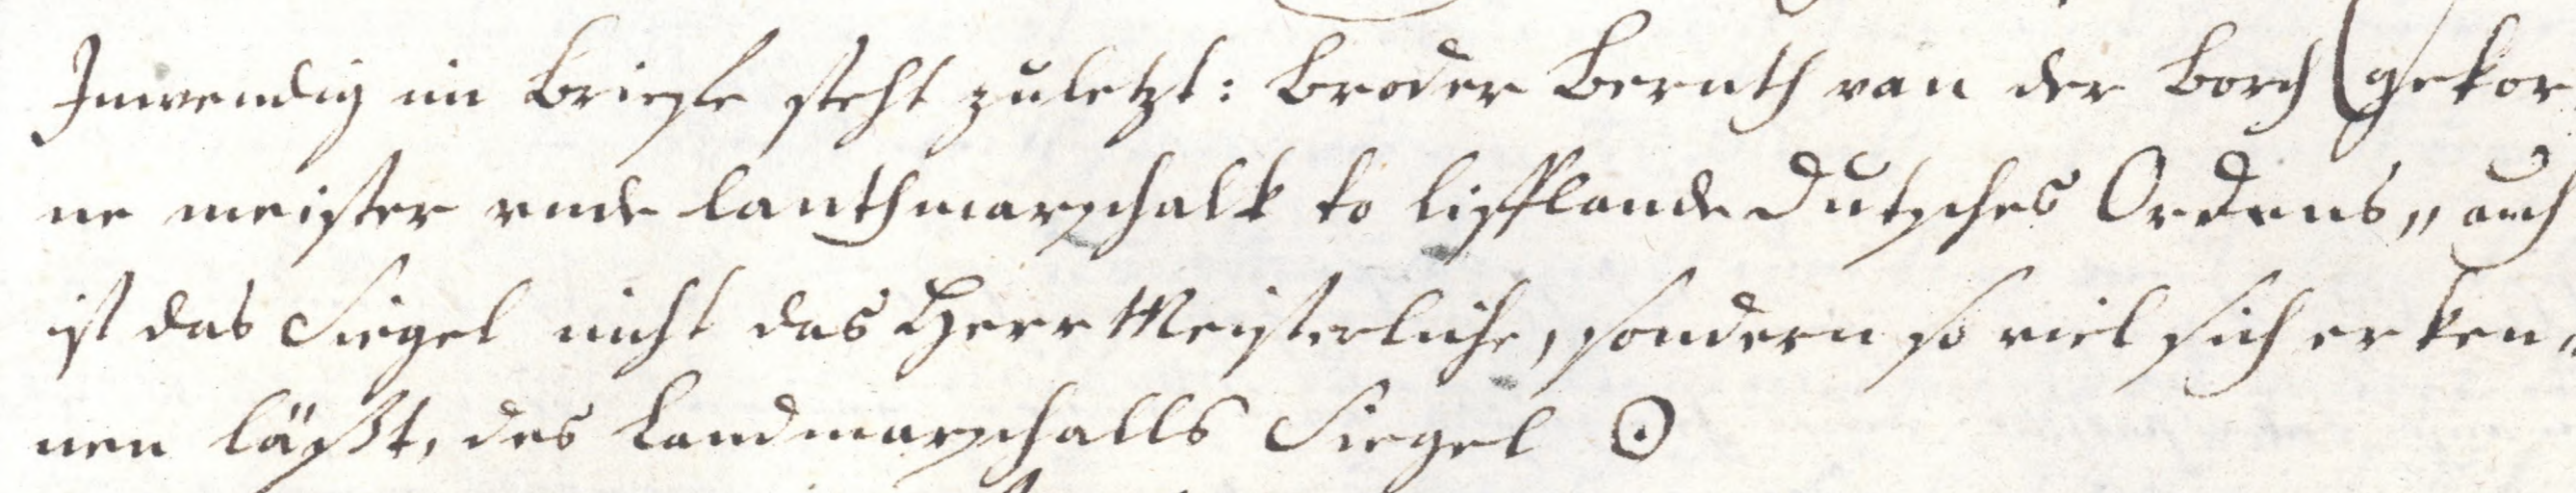 Inwendig im Briefe steht zuletzt: Broder Bernth van der Borch (gekor
ne meister vnde lanthmarschalk to lifflande Dutsches Ordens„ auch
ist das Siegel nicht das Herr Meisterliche, sondern so viel sich erken-
nen läßt, des Landmarschalls Siegel ⊙